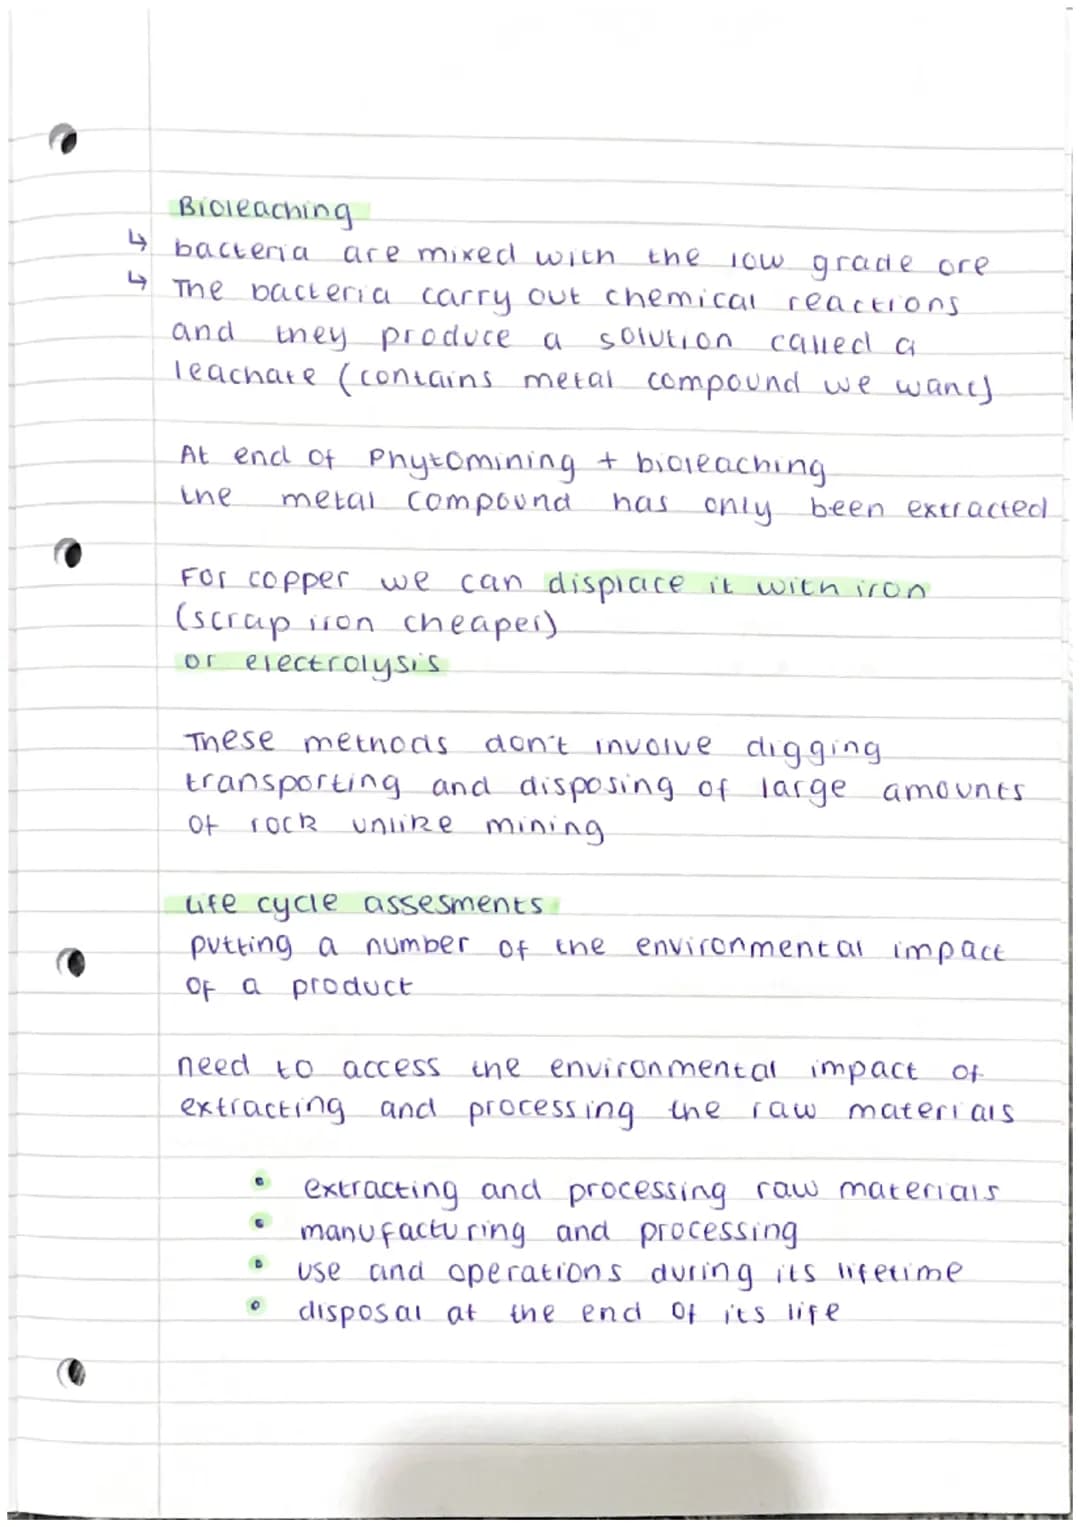 Bioleaching
↳ bacteria are mixed with the low grade ore
↳ The bacteria carry out chemical reactions
and they produce a solution called a
leachate (contains metal compound we want)
At end of Phytomining + bioleaching
the metal compound has only been extracted
For copper we can displace it with iron
(scrap iron cheaper)
or electrolysis
These methods don't involve digging
transporting and disposing of large amounts
of rock unlike mining
Life cycle assesments
putting a number of the environmental impact
of a product
need to access the environmental impact of
extracting and processing the raw materials
• extracting and processing raw materials
• manufacturing and processing
• use and operations during its lifetime
• disposal at the end of its life